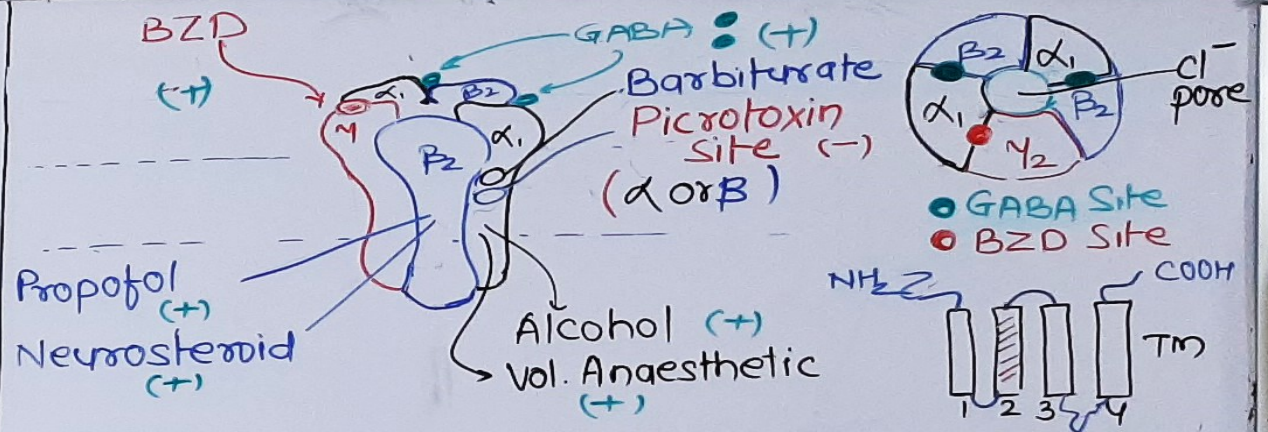 BZD
(+)
GABA : (+)
Barbiturate
Picrotoxin
Site (-)
(α or B)
α1
B2
γ
B2
α1
Propofol
(+)
Neurosteroid
(+)
Alcohol (+)
Vol. Anaesthetic
(+)
B2
α1
α1
B2
γ2
Cl-
pore
GABA Site
BZD Site
NH2
COOH
TM
1 2 3 4